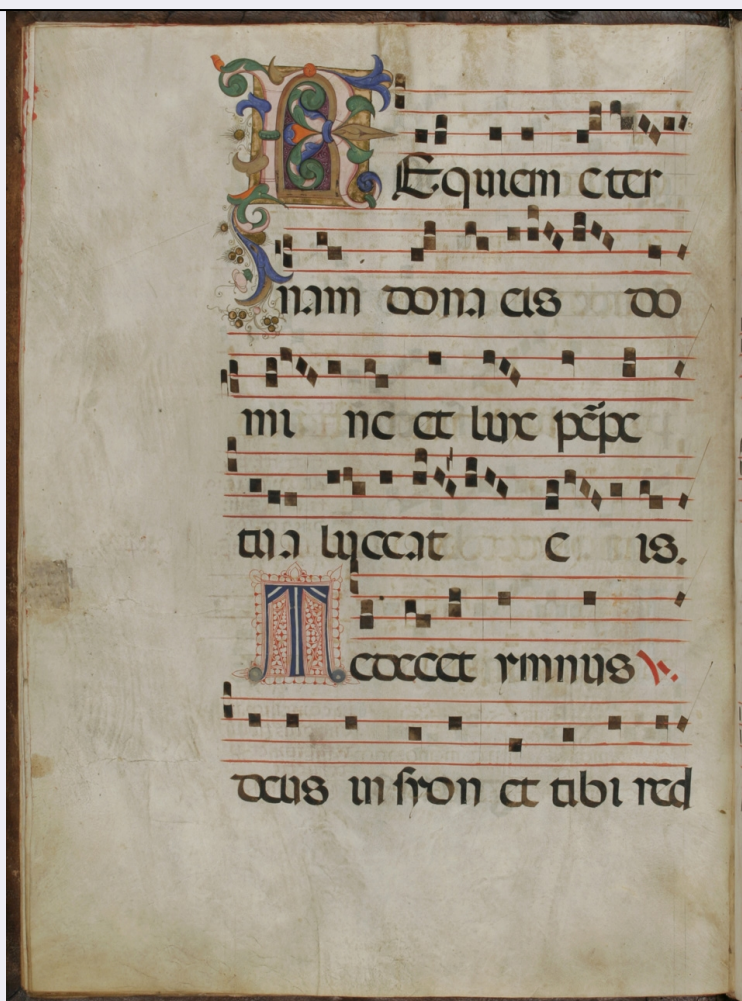 REquiem eter
nam dona eis do
mi ne et lux ꝑpe
tua luceat e is.
Te decet ymnus ℣.
deus in syon et tibi red